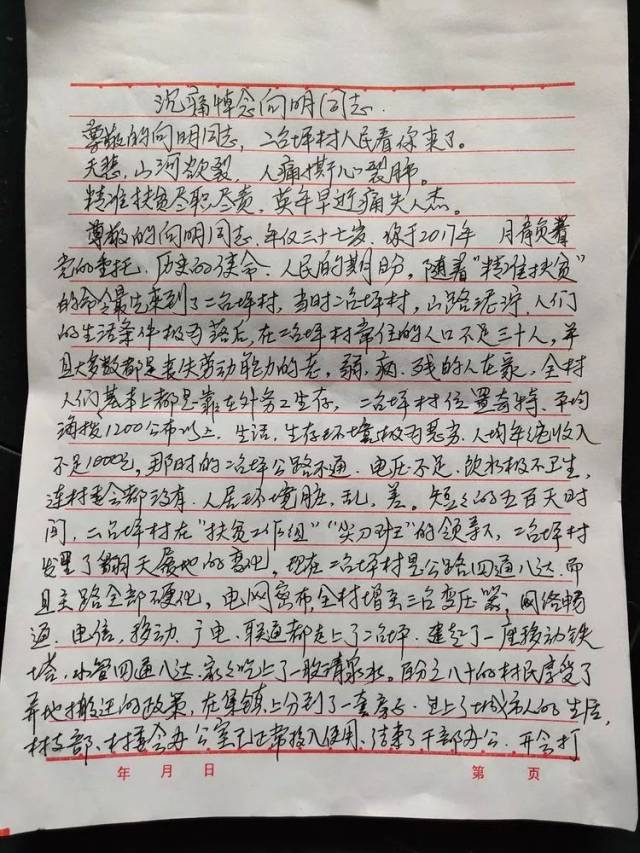 沉痛悼念向明同志.
尊敬的向明同志，二台坪村人民看你来了。
天悲，山河欲裂，人痛撕心裂肺。
精准扶贫尽职尽责，英年早逝痛失人杰。
尊敬的向明同志，年仅三十七岁，你于2017年 月肩负着
党的重托、历史的使命、人民的期盼，随着“精准扶贫”
的命令最先来到了二台坪村，当时二台坪村，山路泥泞，人们
的生活条件极为落后，在二台坪村常住的人口不足三十人，并
且大多数都是丧失劳动能力的老、弱、病、残的人在家，全村
人们基本上都是靠在外务工生存，二台坪村位置奇特、平均
海拔1200公布以上，生活、生存环境极为恶劣，人均年纯收入
不足1000元，那时的二台坪公路不通、电压不足、饮水极不卫生，
连村委会都没有，人居环境脏，乱，差。短短的五百天时
间，二台坪村在“扶贫工作组”“尖刀班”的领导下，二台坪村
发生了翻天覆地的变化，现在二台坪村是公路四通八达，而
且主路全部硬化，电网密布，全村增至三台变压器，网络畅
通，电信，移动、广电、联通都走上了二台坪，建起了一座移动铁
塔，水管四通八达，家家吃上了一股清泉水。百分之八十的村民享受了
异地搬迁的政策，在集镇上分到了一套房子，过上了城市人的生活，
村支部、村委会办公室已正常投入使用，结束了干部办公、开会打
年 月 日 第 页